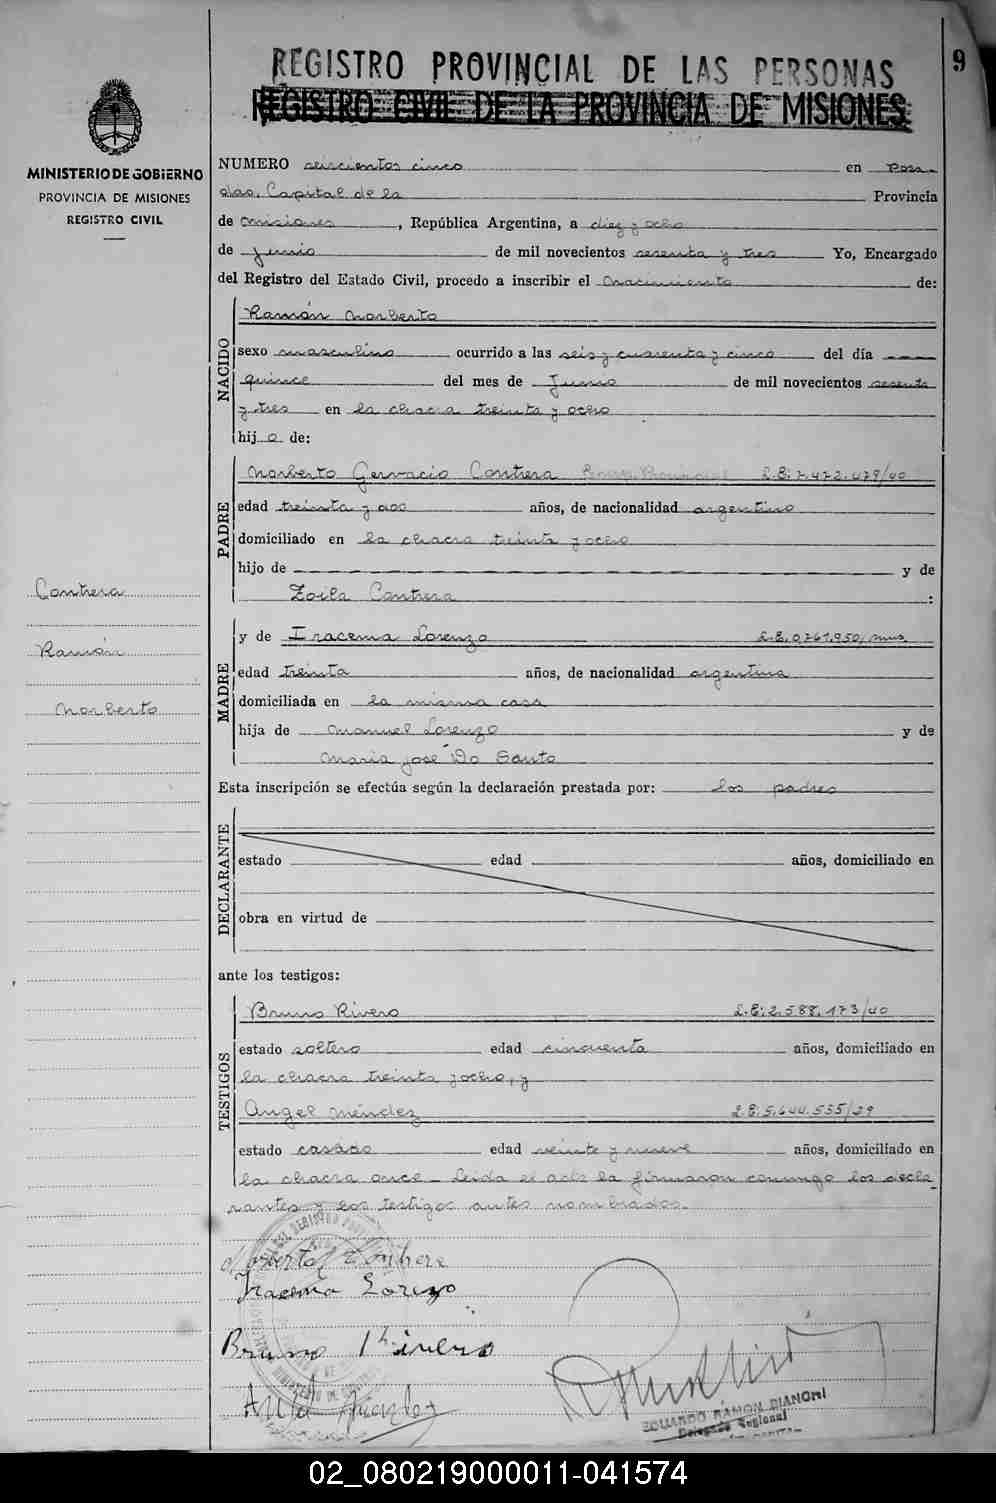 9
REGISTRO PROVINCIAL DE LAS PERSONAS
REGISTRO CIVIL DE LA PROVINCIA DE MISIONES
MINISTERIO DE GOBIERNO
PROVINCIA DE MISIONES
REGISTRO CIVIL
NUMERO seiscientos cinco en Posa-
das, Capital de la Provincia
de Misiones, República Argentina, a diez y ocho
de Junio de mil novecientos sesenta y tres Yo, Encargado
del Registro del Estado Civil, procedo a inscribir el Nacimiento de:
NACIDO
Ramón Norberto
sexo masculino ocurrido a las seis y cuarenta y cinco del día
quince del mes de Junio de mil novecientos sesenta
y tres en la chacra treinta y ocho
hijo de:
PADRE
Norberto Gervacio Contrera L.E: 7.472.479/40
edad treinta y dos años, de nacionalidad argentino
domiciliado en la chacra treinta y ocho
hijo de y de
Zoila Contrera :
Contrera
Ramón
Norberto
MADRE
y de Iracema Lorenzo L.E. 0.761.950, mns.
edad treinta años, de nacionalidad argentina
domiciliada en la misma casa
hija de Manuel Lorenzo y de
María José Do Santo
Esta inscripción se efectúa según la declaración prestada por: los padres
DECLARANTE
estado edad años, domiciliado en
obra en virtud de
ante los testigos:
TESTIGOS
Bruno Rivero L.E: 2.588.173/40
estado soltero edad cincuenta años, domiciliado en
la chacra treinta y ocho, y
Angel Méndez L.E: 5.644.555/29
estado casado edad veinte y nueve años, domiciliado en
la chacra once_ Leida el acta la firmaron conmigo los decla_
rantes y los testigos antes nombrados._
Norberto Contrera
Iracema Lorenzo
Bruno Rivero
EDUARDO RAMON BIANCHI
Delegado Regional
02_080219000011-041574